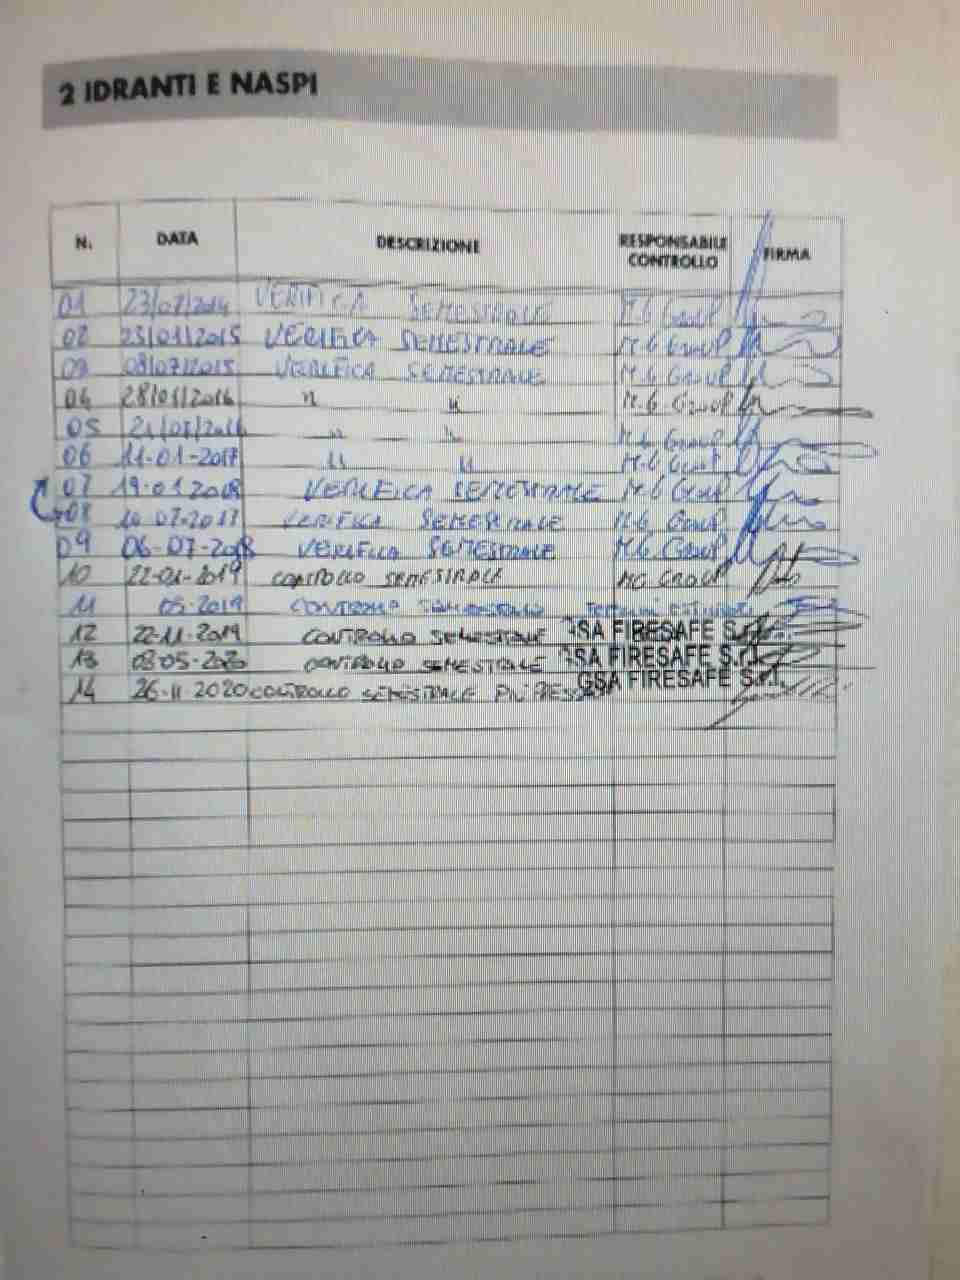 2 IDRANTI E NASPI
N. DATA DESCRIZIONE RESPONSABILE CONTROLLO FIRMA
01 23/07/2014 VERIFICA SEMESTRALE M.G Group
02 23/01/2015 VERIFICA SEMESTRALE M.G Group
03 08/07/2015 VERIFICA SEMESTRALE M.G Group
04 28/01/2016 " " M.G. Group
05 21/07/2016 " " M.G Group
06 11-01-2017 " " M.G Group
07 19-01 2018 VERIFICA SEMESTRALE M.G Group
08 10 07-2017 VERIFICA SEMESTRALE M.G Group
09 06-07-2018 VERIFICA SEMESTRALE M.G Group
10 22-01-2019 CONTROLLO SEMESTRALE MG GROUP
11 05-2019 CONTROLLO SEMESTRALE
12 22-11-2019 CONTROLLO SEMESTRALE GSA FIRESAFE S.r.l.
13 08-05-2020 CONTROLLO SEMESTRALE GSA FIRESAFE S.r.l.
14 26-11 2020 CONTROLLO SEMESTRALE GSA FIRESAFE S.r.l.